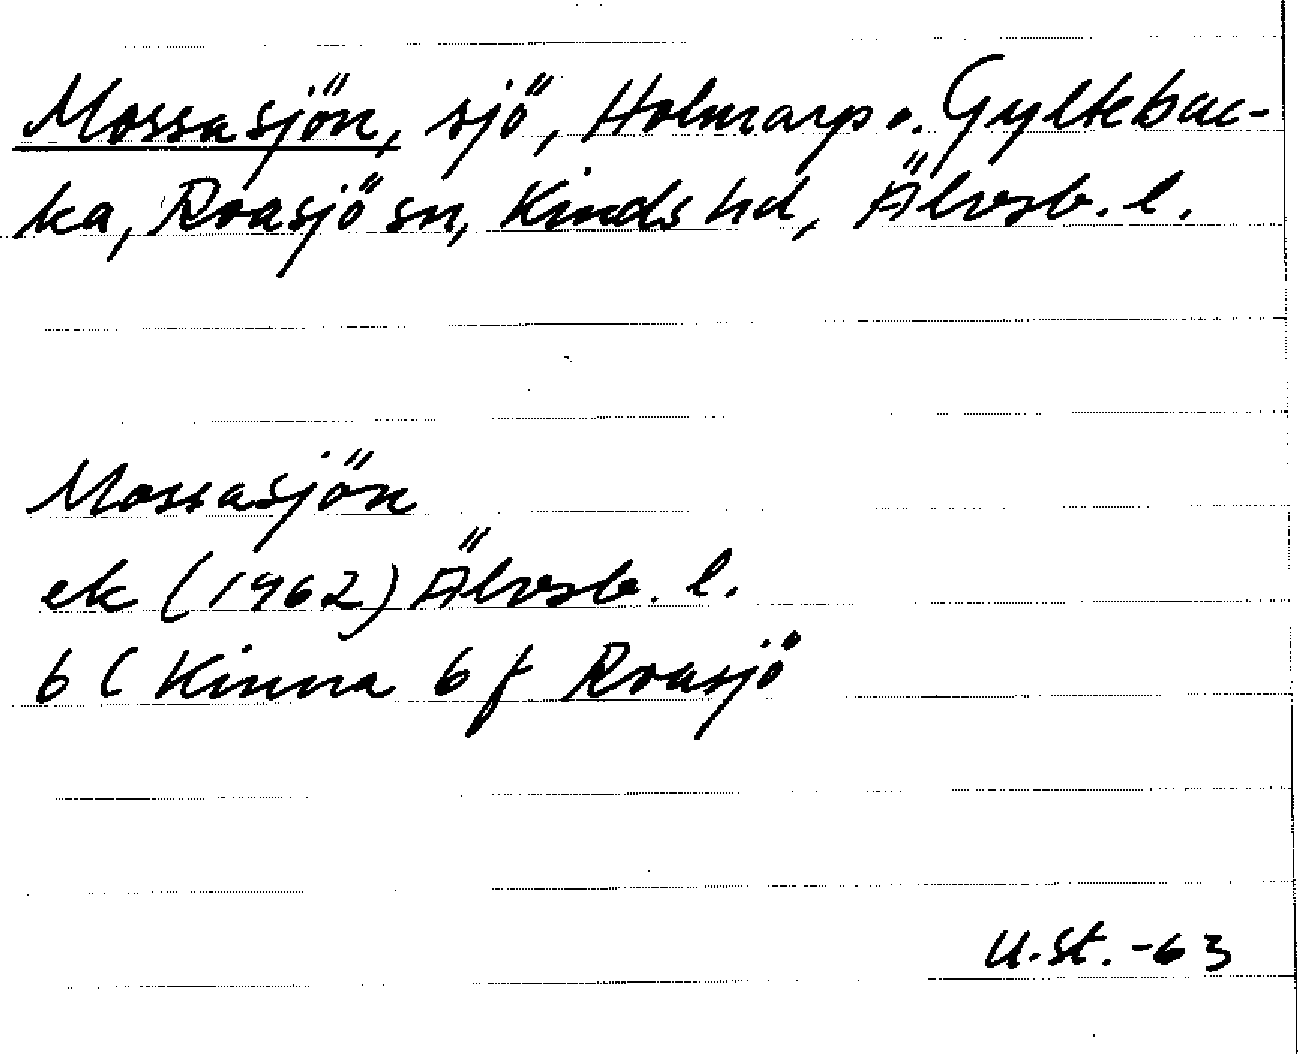 Mossasjön, sjö, Holmarp o. Gyltebac-
ka, Roasjö sn, Kinds hd, Älvsb. l.
Mossasjön
ek (1962) Älvsb. l.
6 C Kinna 6 f Roasjö
U.St. -63